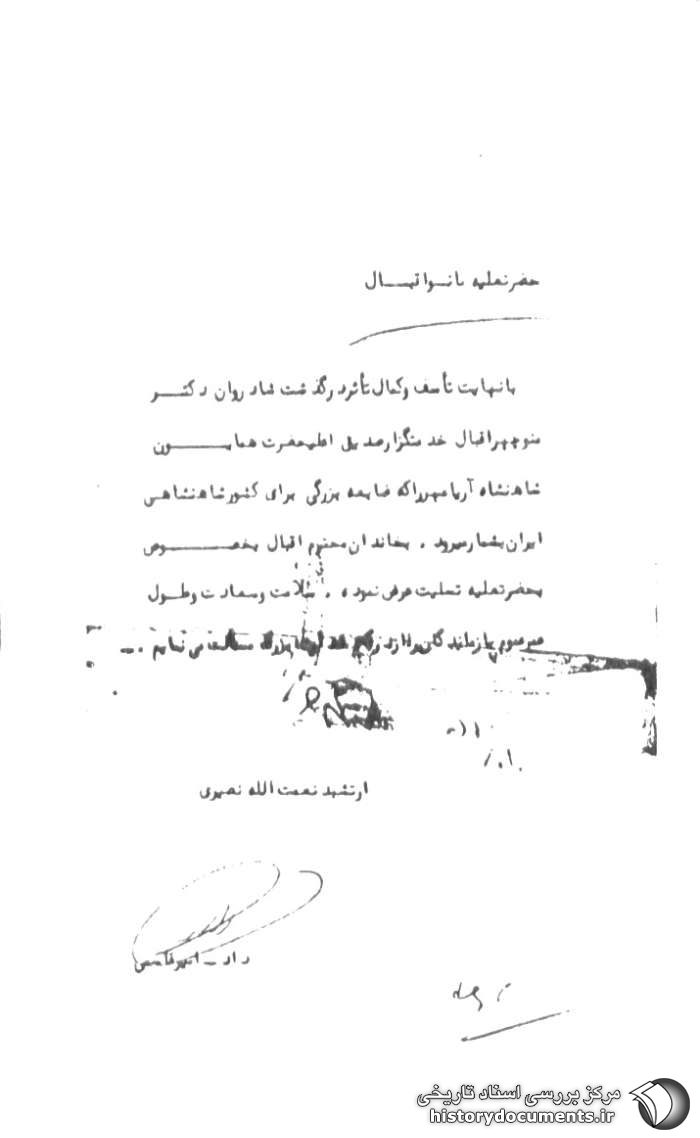 حضرتعلیه بانو اقبال
با نهایت تأسف و کمال تأثر درگذشت شادروان دکتر
منوچهر اقبال خدمتگزار صدیق اعلیحضرت همایون
شاهنشاه آریامهر را که ضایعه بزرگی برای کشور شاهنشاهی
ایران بشمار میرود . بخاندان محترم اقبال بخصوص
بحضرتعلیه تسلیت عرض نموده . سلامت و سعادت و طول
عمر عموم بازماندگان را از مسألت می نمایم .
ارتشبد نعمت الله نصیری
مرکز بررسی اسناد تاریخی
historydocuments.ir